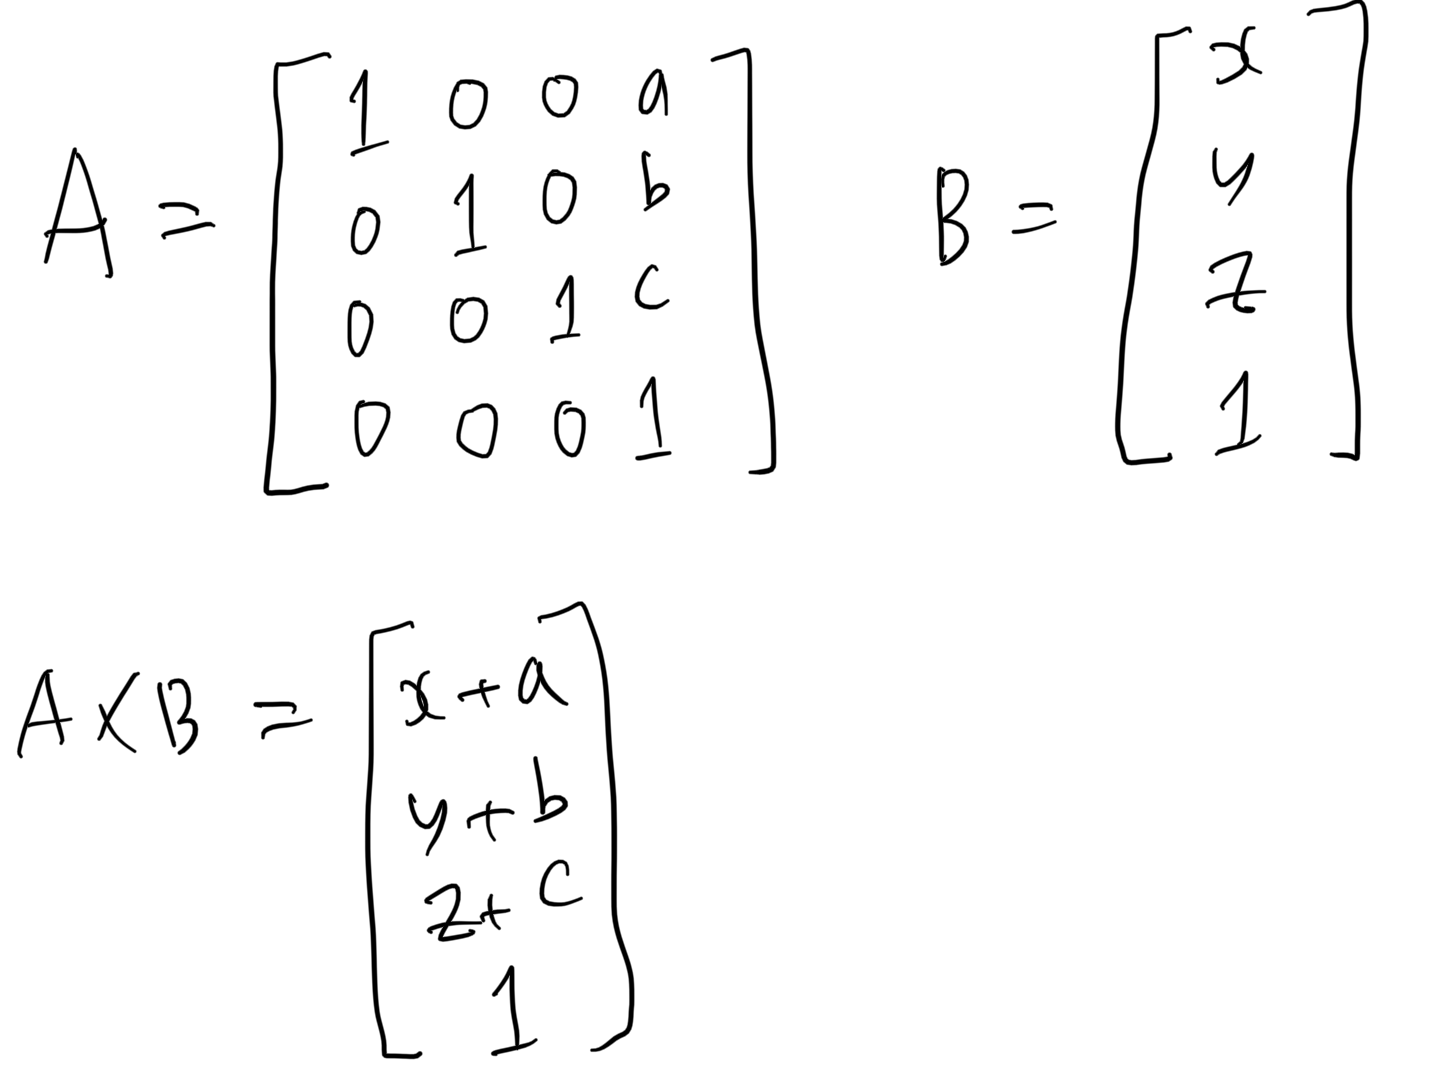 A = [ 1 0 0 a
0 1 0 b
0 0 1 c
0 0 0 1 ]
B = [ x
y
z
1 ]
A × B = [ x + a
y + b
z + c
1 ]